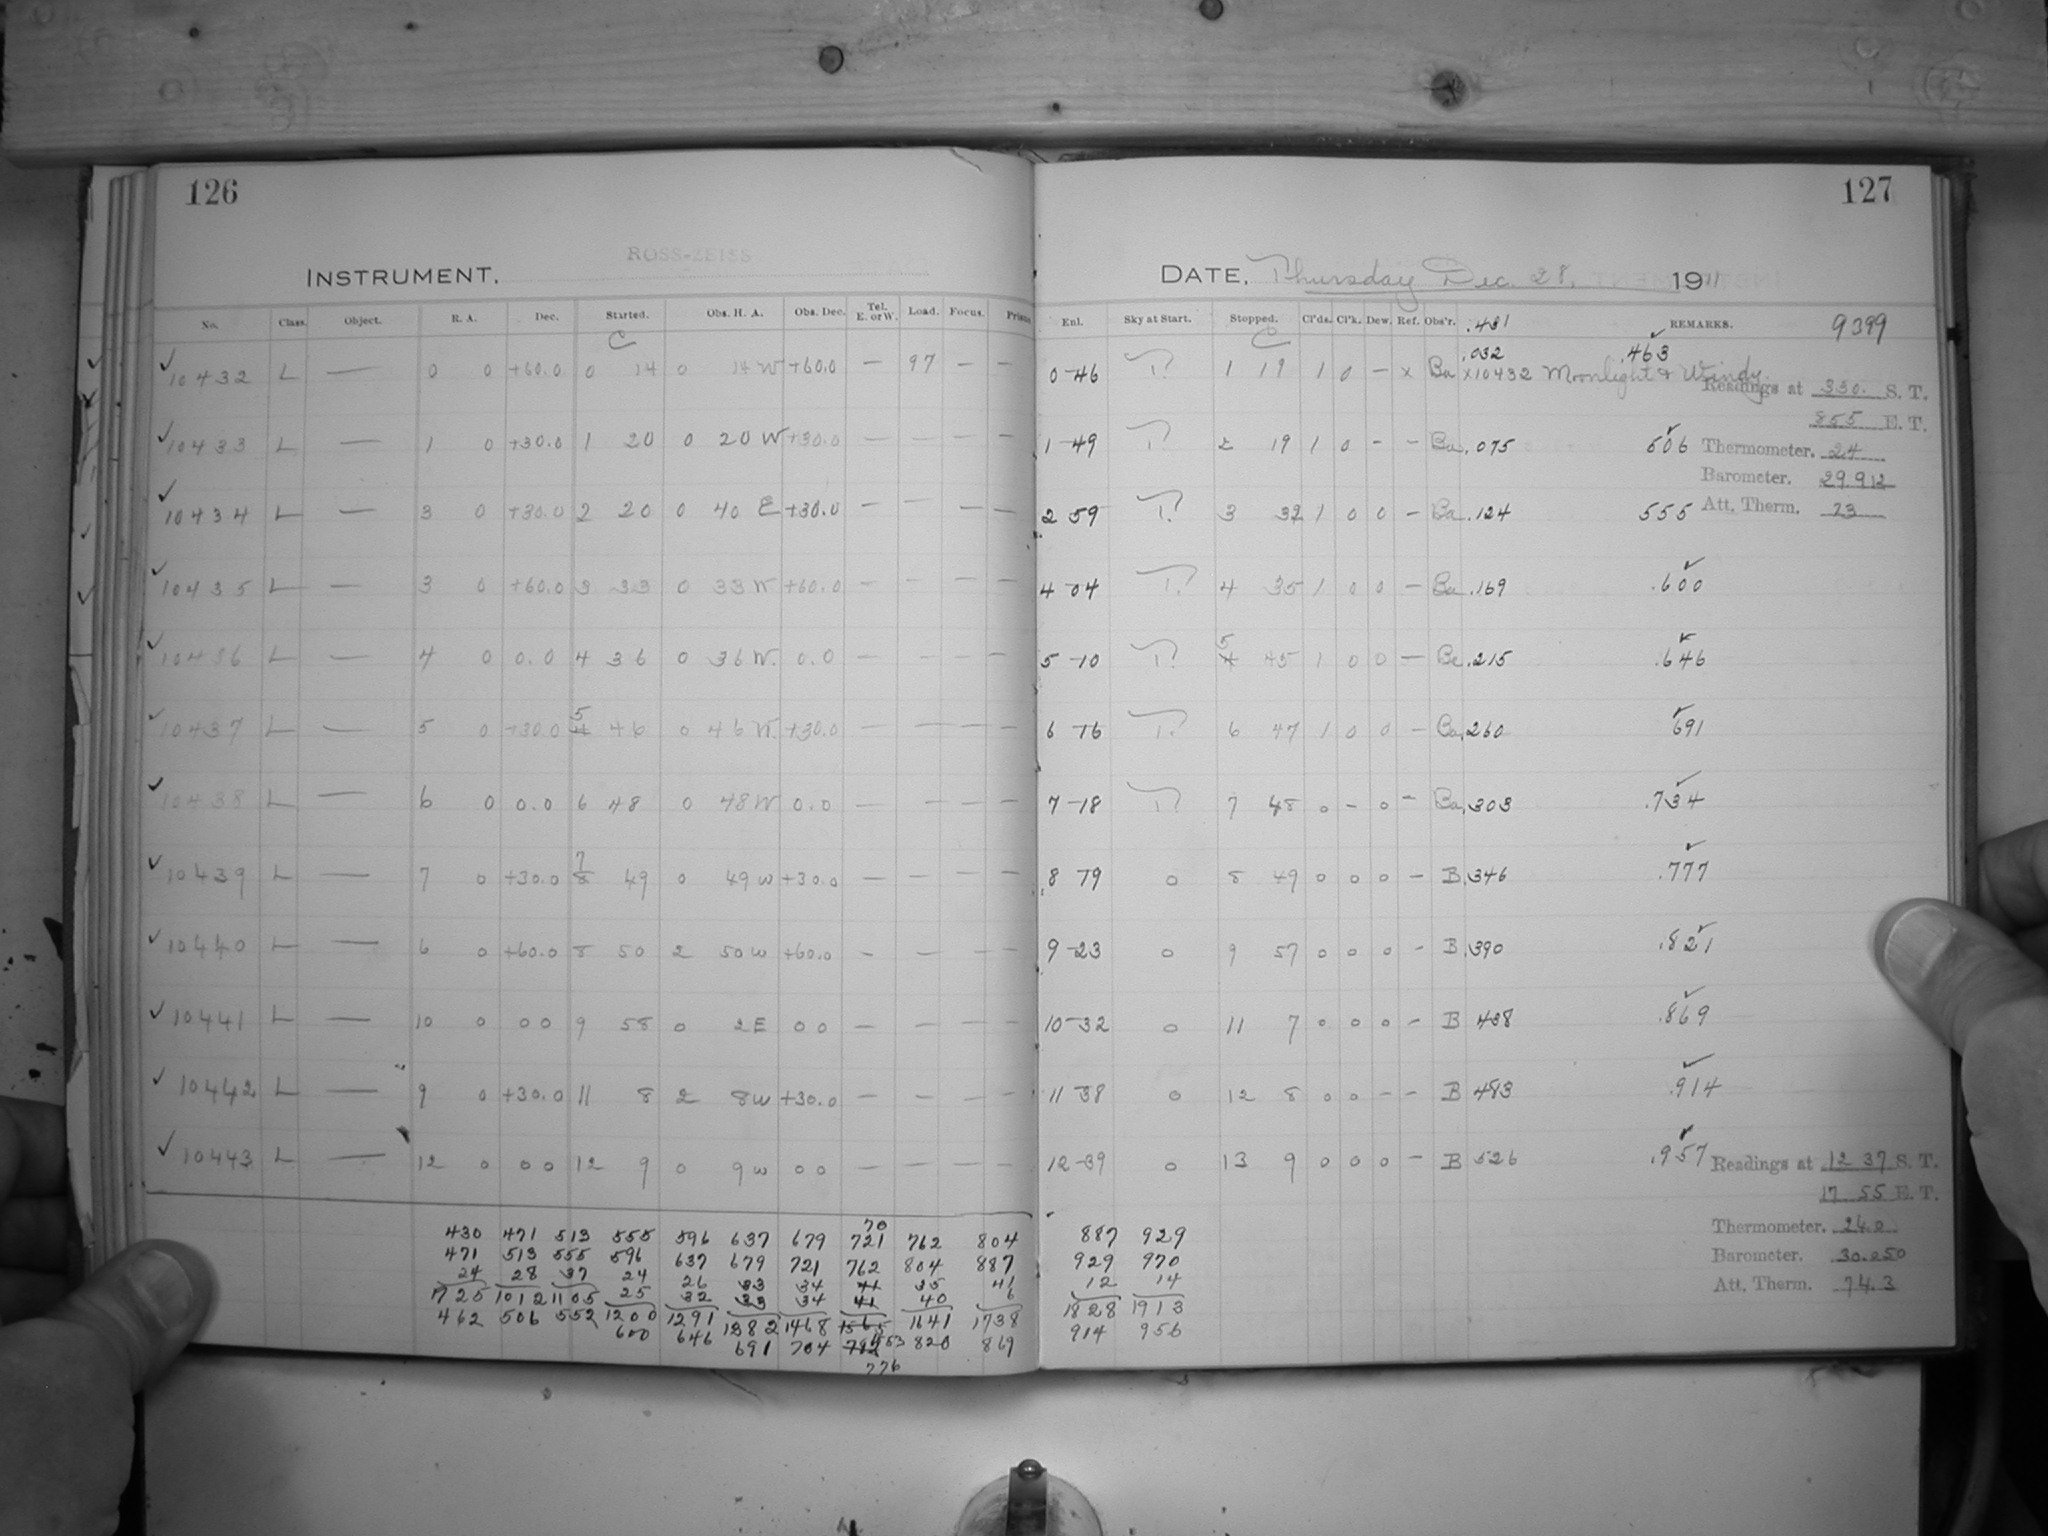 126
127
ROSS-ZEISS
INSTRUMENT.
DATE, Thursday Dec. 28, 1911
No. Class. Object. R. A. Dec. Started. Obs. H. A. Obs. Dec. Tel. E. or W. Load. Focus. Prism
Enl. Sky at Start. Stopped. Cl'ds. Cl'k. Dew. Ref. Obs'r. .431 REMARKS. 9399
C C .032 .463
10432 L — 0 0 +60.0 0 14 0 14 W +60.0 — 97 — — 0-46 1 19 1 0 — x Ba x10432 Moonlight & Windy.
Readings at 330. S. T.
855 E. T.
10433 L — 1 0 +30.0 1 20 0 20 W +30.0 — — — — 1-49 2 19 1 0 - - Ba .075 506
Thermometer. 24
Barometer. 29.912
10434 L — 3 0 +30.0 2 20 0 40 E +30.0 — — — — 2 59 3 32 1 0 0 - Ba .124 555
Att. Therm. 73
10435 L — 3 0 +60.0 3 33 0 33 W +60.0 — — — — 4-04 4 35 1 0 0 - Ba .169 .600
10436 L — 4 0 0.0 4 36 0 36 W. 0.0 — — — — 5-10 5 45 1 0 0 — Ba .215 .646
10437 L — 5 0 +30.0 5 46 0 46 W. +30.0 — — — — 6 16 6 47 1 0 0 - Ba .260 691
10438 L — 6 0 0.0 6 48 0 48 W 0.0 — — — — 7-18 7 48 0 - 0 - Ba .303 .734
10439 L — 7 0 +30.0 7 49 0 49 W +30.0 — — — — 8 19 0 8 49 0 0 0 - B .346 .777
10440 L — 6 0 +60.0 8 50 2 50 W +60.0 — — — — 9-23 0 9 57 0 0 0 - B .390 .821
10441 L — 10 0 0 0 9 58 0 2 E 0 0 — — — — 10-32 0 11 7 0 0 0 - B 438 .869
10442 L — 9 0 +30.0 11 8 2 8 W +30.0 — — — — 11 38 0 12 8 0 0 - - B 483 .914
10443 L — 12 0 0 0 12 9 0 9 W 0 0 — — — — 12-39 0 13 9 0 0 0 - B 526 .957
Readings at 12 37 S. T.
17 55 E. T.
Thermometer. 24.0
Barometer. 30.250
Att. Therm. 74.3
70
430 471 513 555 596 637 679 721 762 804 887 929
471 513 555 596 637 679 721 762 804 887 929 970
24 28 37 24 26 33 34 41 35 41 12 14
25 32 33 34 41 40 6
925 1012 1105 1200 1291 1382 1468 1641 1738 1828 1913
462 506 552 600 646 691 734 820 869 914 956
776